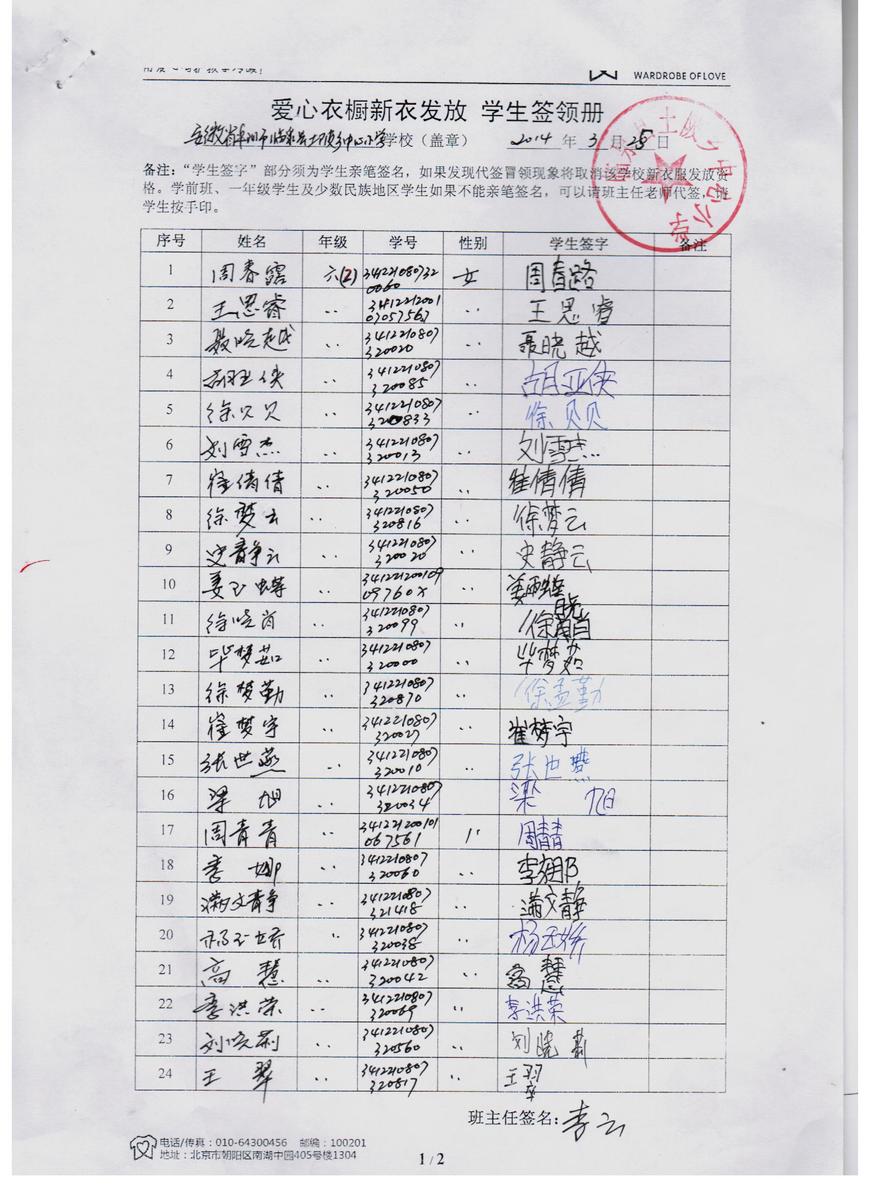 WARDROBE OF LOVE
爱心衣橱新衣发放 学生签领册
安徽省阜阳市临泉县土陂乡中心小学学校（盖章） 2014 年 3 月 25 日
备注：“学生签字”部分须为学生亲笔签名，如果发现代签冒领现象将取消该学校新衣服发放资
格。学前班、一年级学生及少数民族地区学生如果不能亲笔签名，可以请班主任老师代签，请
学生按手印。
序号 姓名 年级 学号 性别 学生签字 备注
1 周春露 六(2) 341221080732 0060 女 周春路
2 王思睿 .. 3412212001 03057563 .. 王思睿
3 聂晓越 .. 3412210807 320020 .. 聂晓越
4 胡亚侠 .. 3412210807 320085 .. 胡亚侠
5 徐贝贝 .. 3412210807 320833 .. 徐贝贝
6 刘雪杰 .. 3412210807 320013 .. 刘雪杰
7 崔倩倩 .. 3412210807 320050 .. 崔倩倩
8 徐梦云 .. 3412210807 320816 .. 徐梦云
9 史静云 .. 3412210807 320020 .. 史静云
10 姜玉蝶 .. 341221200109 09760X ..
11 徐晓肖 .. 3412210807 320099 ..
12 毕梦茹 .. 3412210807 320000 .. 毕梦茹
13 徐梦勤 .. 3412210807 320870 .. 徐孟勤
14 崔梦宇 .. 3412210807 320027 .. 崔梦宇
15 张世燕 .. 3412210807 320010 .. 张世燕
16 梁旭 .. 3412210807 320034 .. 梁旭
17 周青青 .. 341221200101 067561 .. 周青青
18 李娜 .. 3412210807 320060 .. 李娜
19 满文静 .. 3412210807 321418 .. 满文静
20 杨玉婷 .. 3412210807 320038 ..
21 高慧 .. 3412210807 320042 .. 高慧
22 李洪荣 .. 3412210807 320069 .. 李洪荣
23 刘晓莉 .. 3412210807 320560 .. 刘晓莉
24 王翠 .. 3412210807 320817 .. 王翠
班主任签名：李云
电话/传真：010-64300456 邮编：100201
地址：北京市朝阳区南湖中园405号楼1304
1 / 2